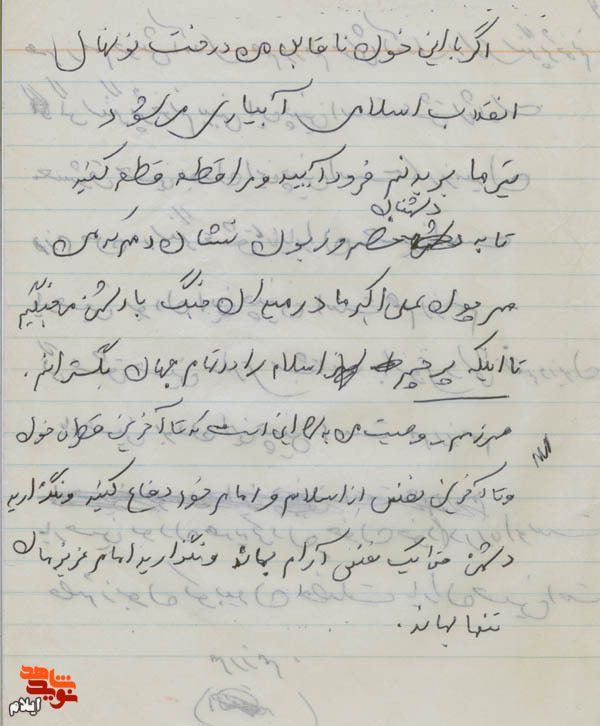 اگر با این خون ناقابل من درخت نونهال
انقلاب اسلامی آبیاری می‌شود
تیرها بر بدنم فرود آیید و مرا قطعه قطعه کنید
دشمنان
تا به زبون نشان دهم که من
همچون علی اکبرها در میدان جنگ با دشمن می‌جنگیم
تا اینکه پرچم اسلام را در تمام جهان بگسترانم.
وصیت من به این است که تا آخرین قطره خون
و تا آخرین نفس از اسلام و امام خود دفاع کنید و نگذارید
دشمن حتی یک نفس آرام بماند و نگذارید امام عزیزمان
تنها بماند.
شاهد
نوید
ایلام